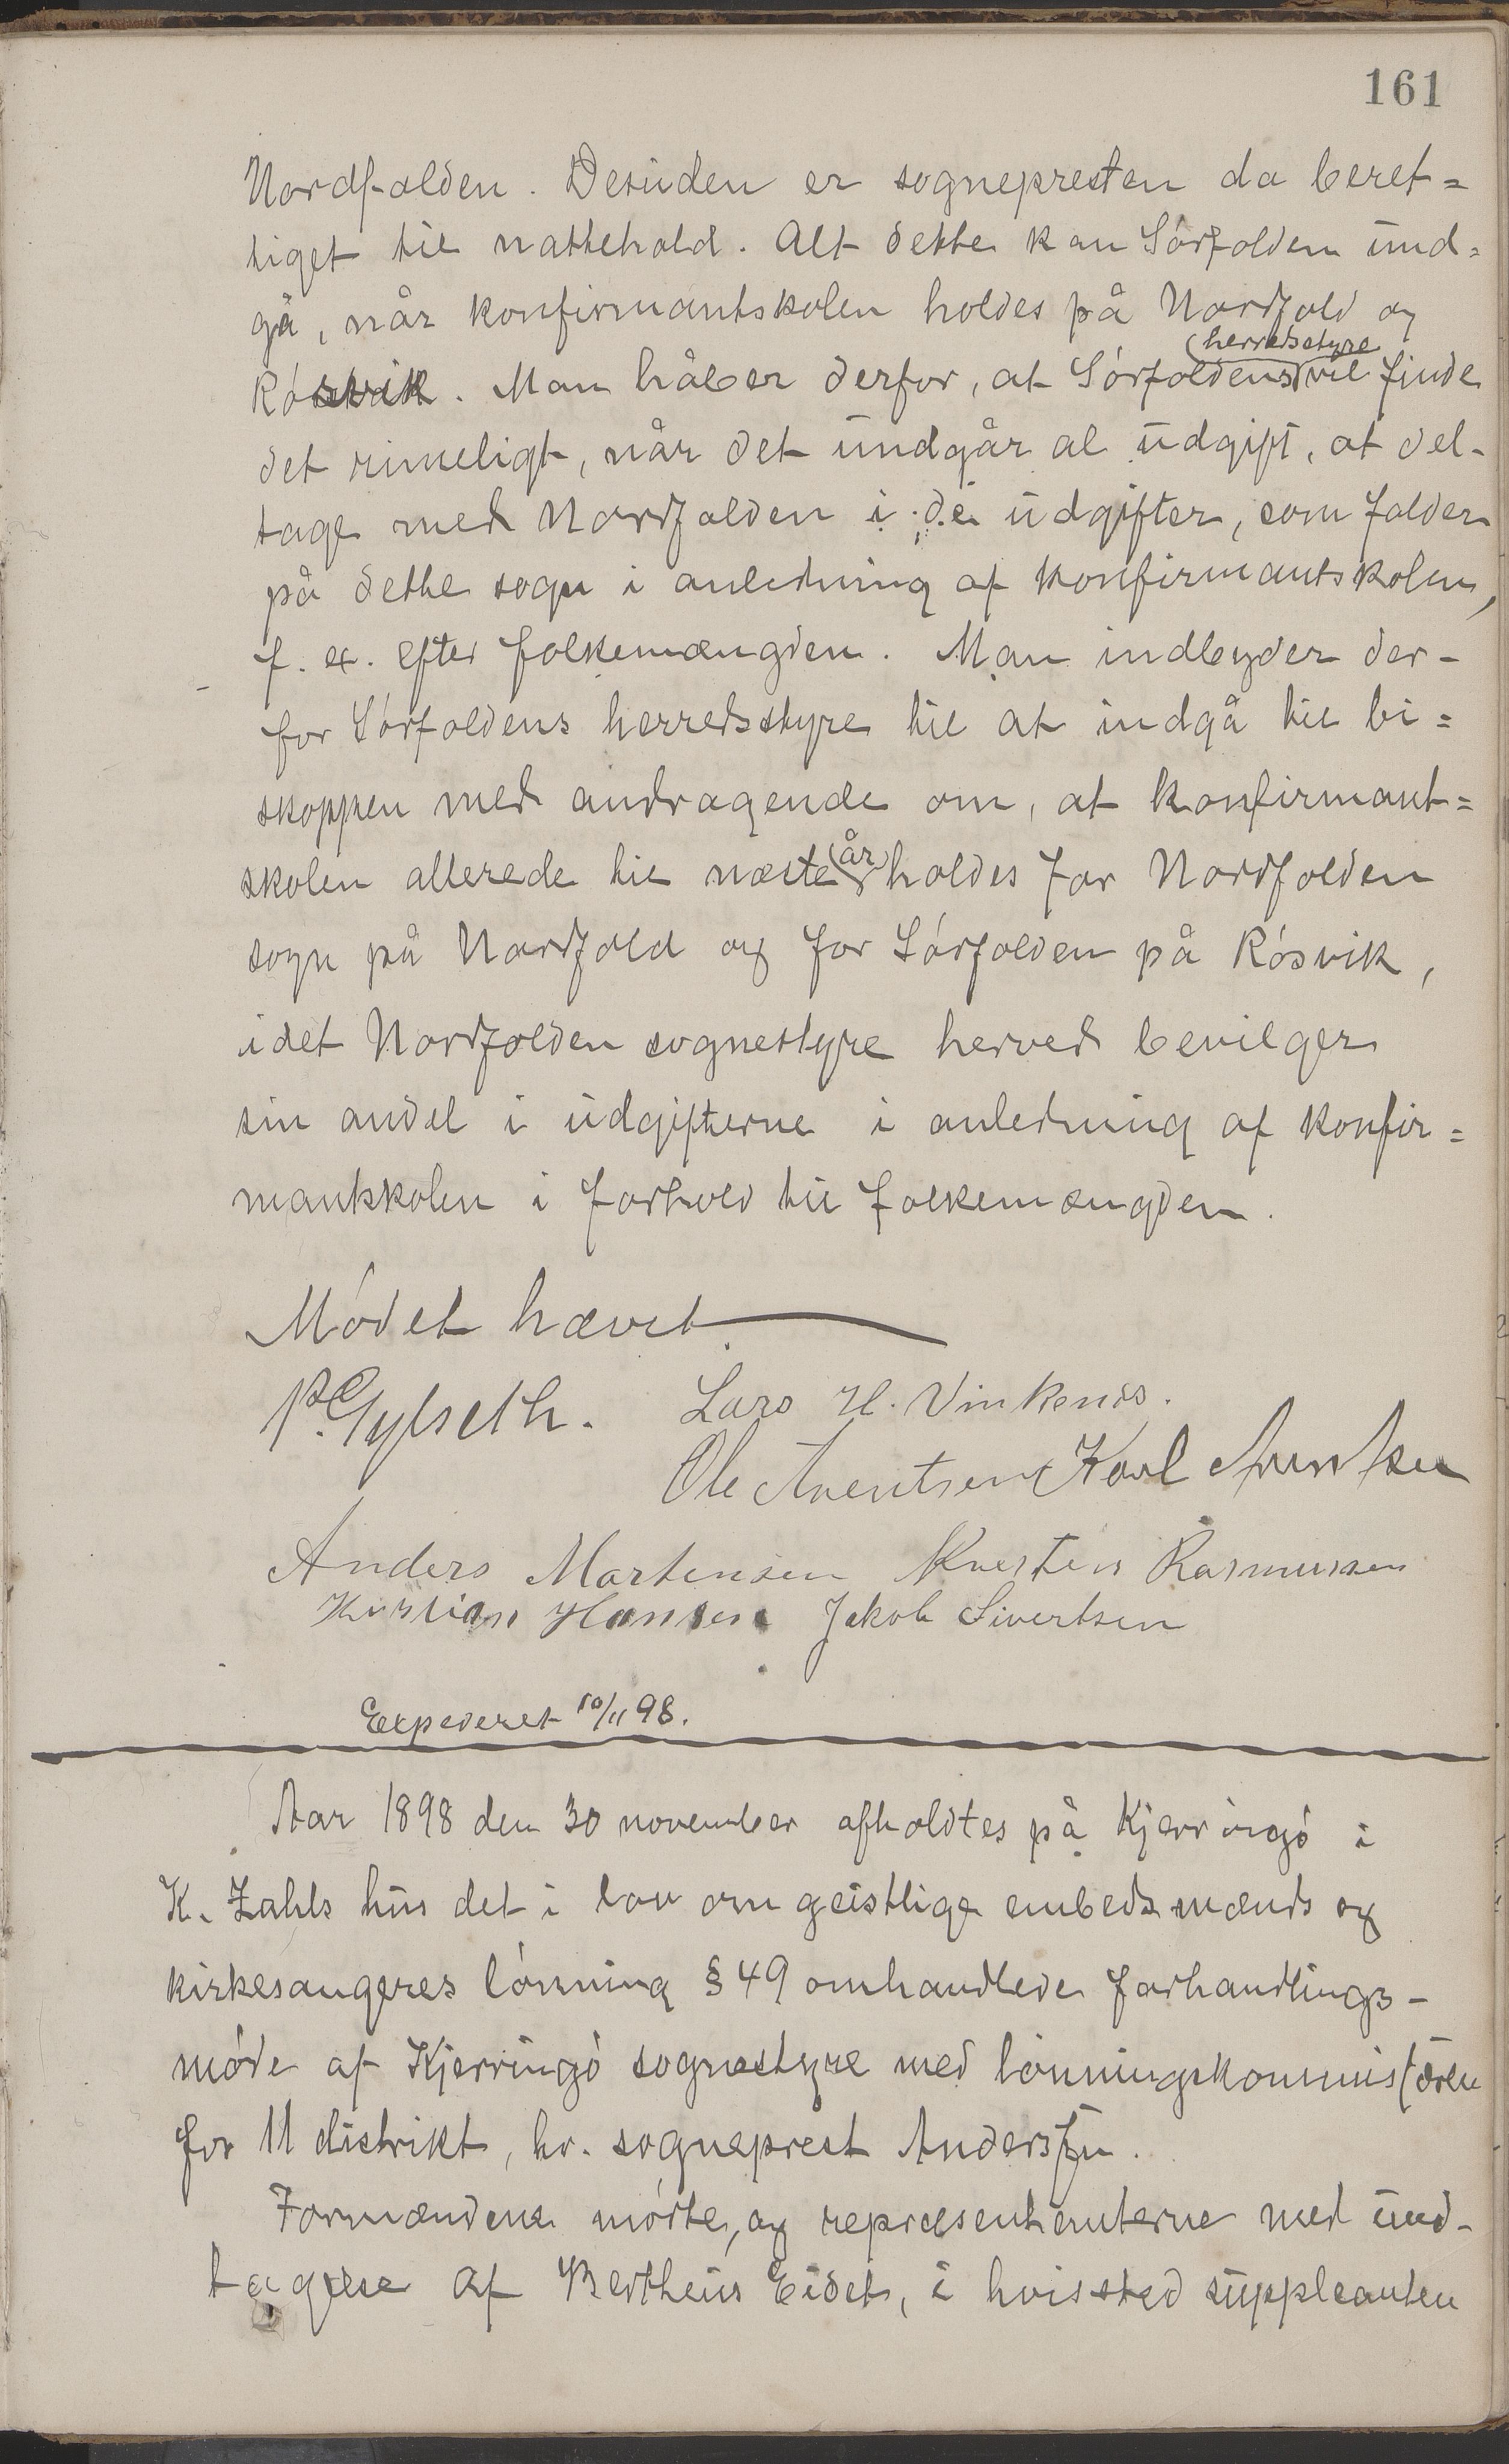 161
Nordfolden. Desuden er sognepresten da beret=
tiget til nattehold. Alt dette kan Sórfolden und=
gå, når konfirmantskolen holdes på Nordfold og
herredsstyre
Rósvik. Man håber derfor, at Sórfoldens vil finde
det rimeligt, når det undgår al udgift, at del-
tage med Nordfolden i de udgifter, som falder
på dette sogn i anledning af konfirmantskolen,
f. ex. efter folkemængden. Man indbyder der-
for Sórfoldens herredsstyre til at indgå til bi=
skoppen med andragende om, at konfirmant=
skolen allerede til næste år holdes for Nordfolden
sogn på Nordfold og for Sórfolden på Rósvik,
idet Nordfolden sognestyre herved bevilger
sin andel i udgifterne i anledning af konfir=
mantskolen i forhold til folkemængden.
Módet hævet
P. Gylseth. Lars H. Vinkenes.
Ole Arentsen Karl
Anders Martensen Rasmussen
Kristian Hansen Jakob Sivertsen
Expederet 10/11 98.
Aar 1898 den 30 november afholdtes på Kjerringó i
K. Zahls hus det i lov om geistlige embedsmænds og
kirkesangeres lónning § 49 omhandlede forhandlings-
móde af Kjerringó sognestyre med lónningskommissæren
for 11 distrikt, hr. sogneprest Anderssen.
Formændene mótte, og repræsentanterne med und-
tagelse af Bertheus Eidet, i hvis sted suppleanten